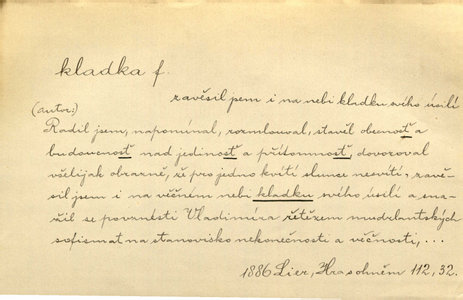 kladka f.
zavěsil jsem i na nebi kladku svého úsilí
(autor:)
Radil jsem, napomínal, rozmlouval, stavěl obecnosť a
budoucnosť nad jedinosť a přítomnosť, dovozoval
všelijak obrazně, že pro jedno kvítí slunce nesvítí, zavě-
sil jsem i na věčném nebi kladku svého úsilí a sna-
žil se povznésti Vladimíra řetězem mudrlantských
sofismat na stanovisko nekonečnosti a věčnosti, ...
1886 Lier, Hra s ohněm 112, 32.